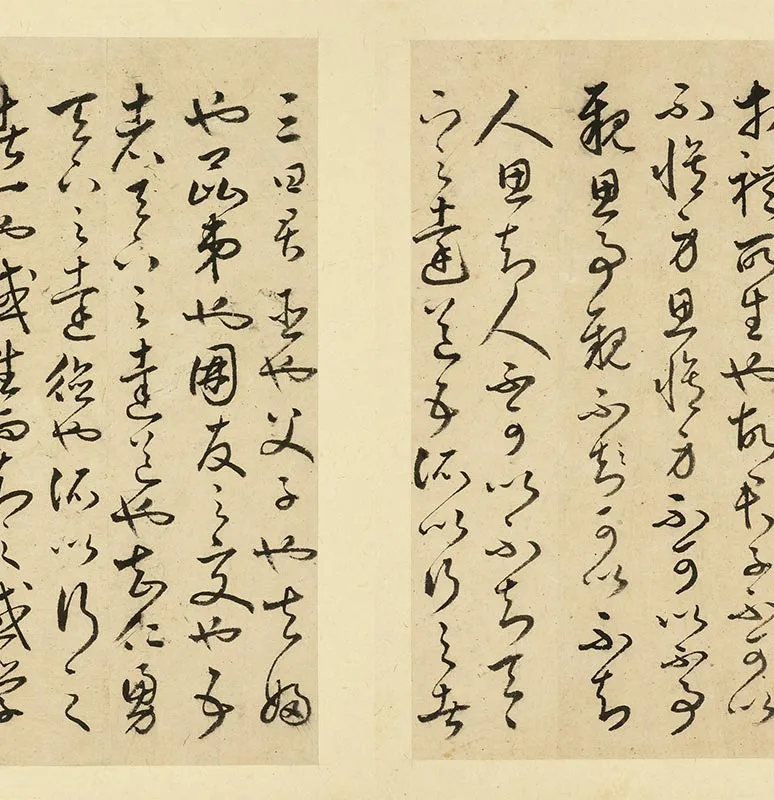 等禮所生也故君子不可以
不脩身思脩身不可以不事
親思事親不知可以不知
人思知人不可以不知天〻
下之達道五所以行之者
三曰君臣也父子也夫婦
也昆弟也朋友之交也五
者天下之達道也知仁勇
天下之達德也所以行之
者一也或生而知之或學